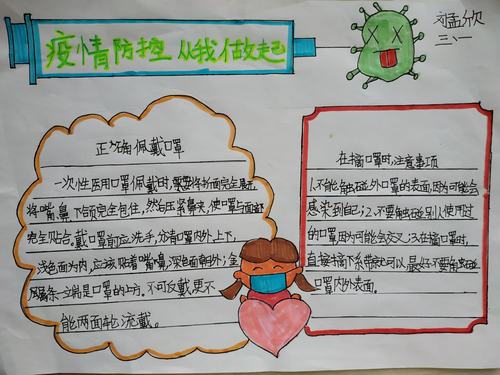 疫情防控 从我做起
刘孟欣
三、一
正确佩戴口罩
一次性医用口罩佩戴时,要将折面完全展开
将嘴、鼻、下颌完全包住,然后压紧鼻夹,使口罩与面部
完全贴合。戴口罩前应洗手,分清口罩内外、上下,
浅色面为内,应该贴着嘴鼻,深色面朝外;金
属条一端是口罩的上方。不可反戴,更不
能两面轮流戴。
在摘口罩时,注意事项
1.不能触碰外口罩的表面,因为可能会
感染到自己;2.不要触碰别人使用过
的口罩因为可能会交叉;3.在摘口罩时,
直接摘下系带就可以 最好不要触碰
口罩内外表面。